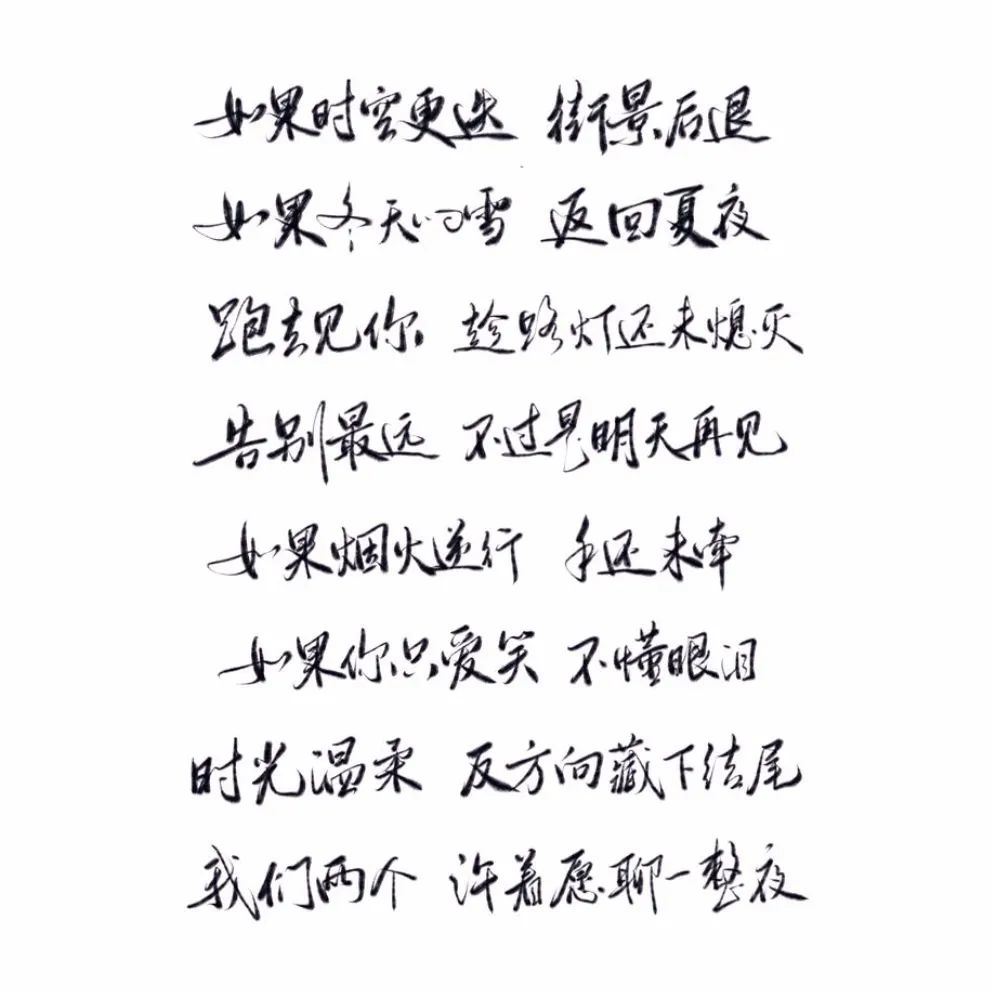 如果时空更迭 街景后退
如果冬天的雪 返回夏夜
跑去见你 趁路灯还未熄灭
告别最远 不过是明天再见
如果烟火逆行 手还未牵
如果你只爱笑 不懂眼泪
时光温柔 反方向藏下结尾
我们两个 许着愿聊一整夜